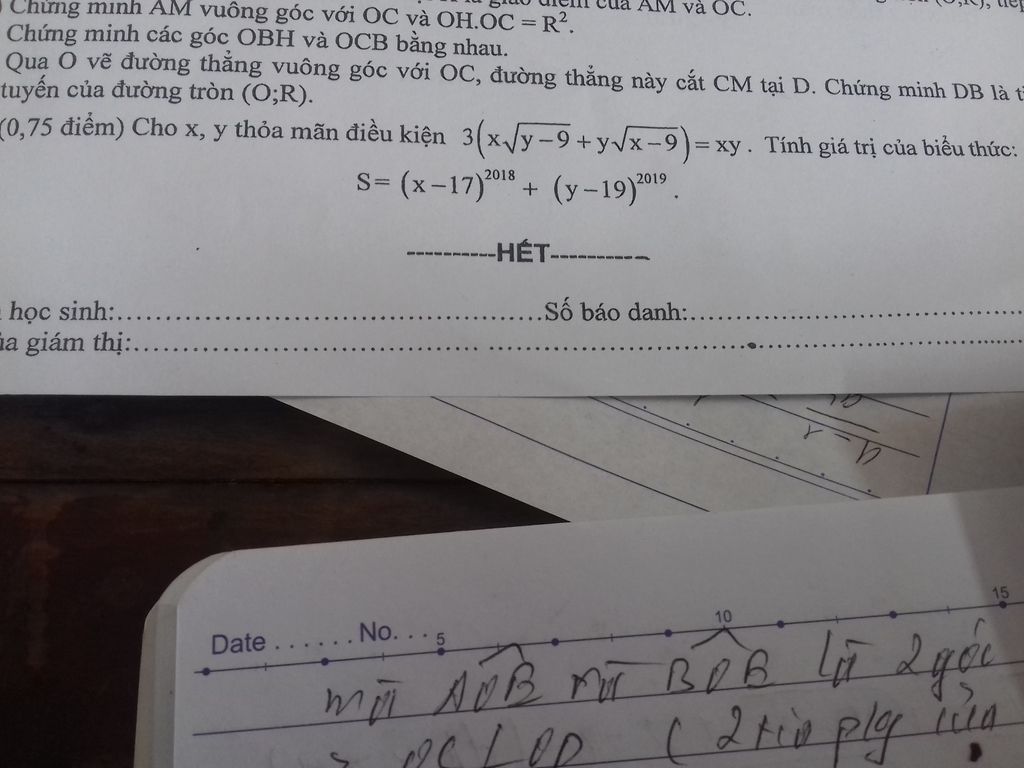 Chứng minh AM vuông góc với OC và OH.OC = R².
của AM và OC.
Chứng minh các góc OBH và OCB bằng nhau.
Qua O vẽ đường thẳng vuông góc với OC, đường thẳng này cắt CM tại D. Chứng minh DB là
tuyến của đường tròn (O;R).
(0,75 điểm) Cho x, y thỏa mãn điều kiện 3(x√(y−9) + y√(x−9)) = xy . Tính giá trị của biểu thức:
S= (x−17)²⁰¹⁸ + (y−19)²⁰¹⁹ .
----------HẾT----------
học sinh:.......................................................Số báo danh:...........................................
giám thị:.....................................................................................................
Date . . . . . . No. . . . 5 10 15
mà AOB BOB là 2 góc
OC ⊥ OD ( 2